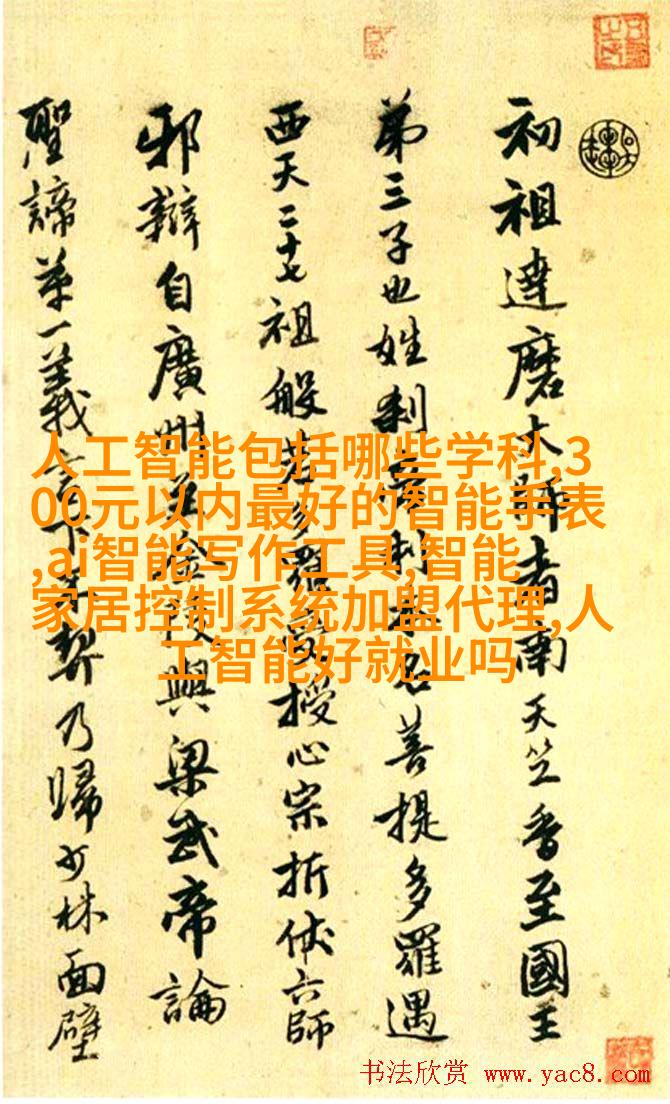 初祖達磨大師者南天竺香至國王
第三子也姓刹帝利本名菩提多羅遇
西天二十七祖般若多羅授心宗折伏六師
邪辯自廣州與梁武帝論
聖諦第一義言下不契乃歸少林面壁
人工智能包括哪些学科,3
00元以内最好的智能手表
,ai智能写作工具,智能
家居控制系统加盟代理,人
工智能好就业吗
书法欣赏 www.yac8.com